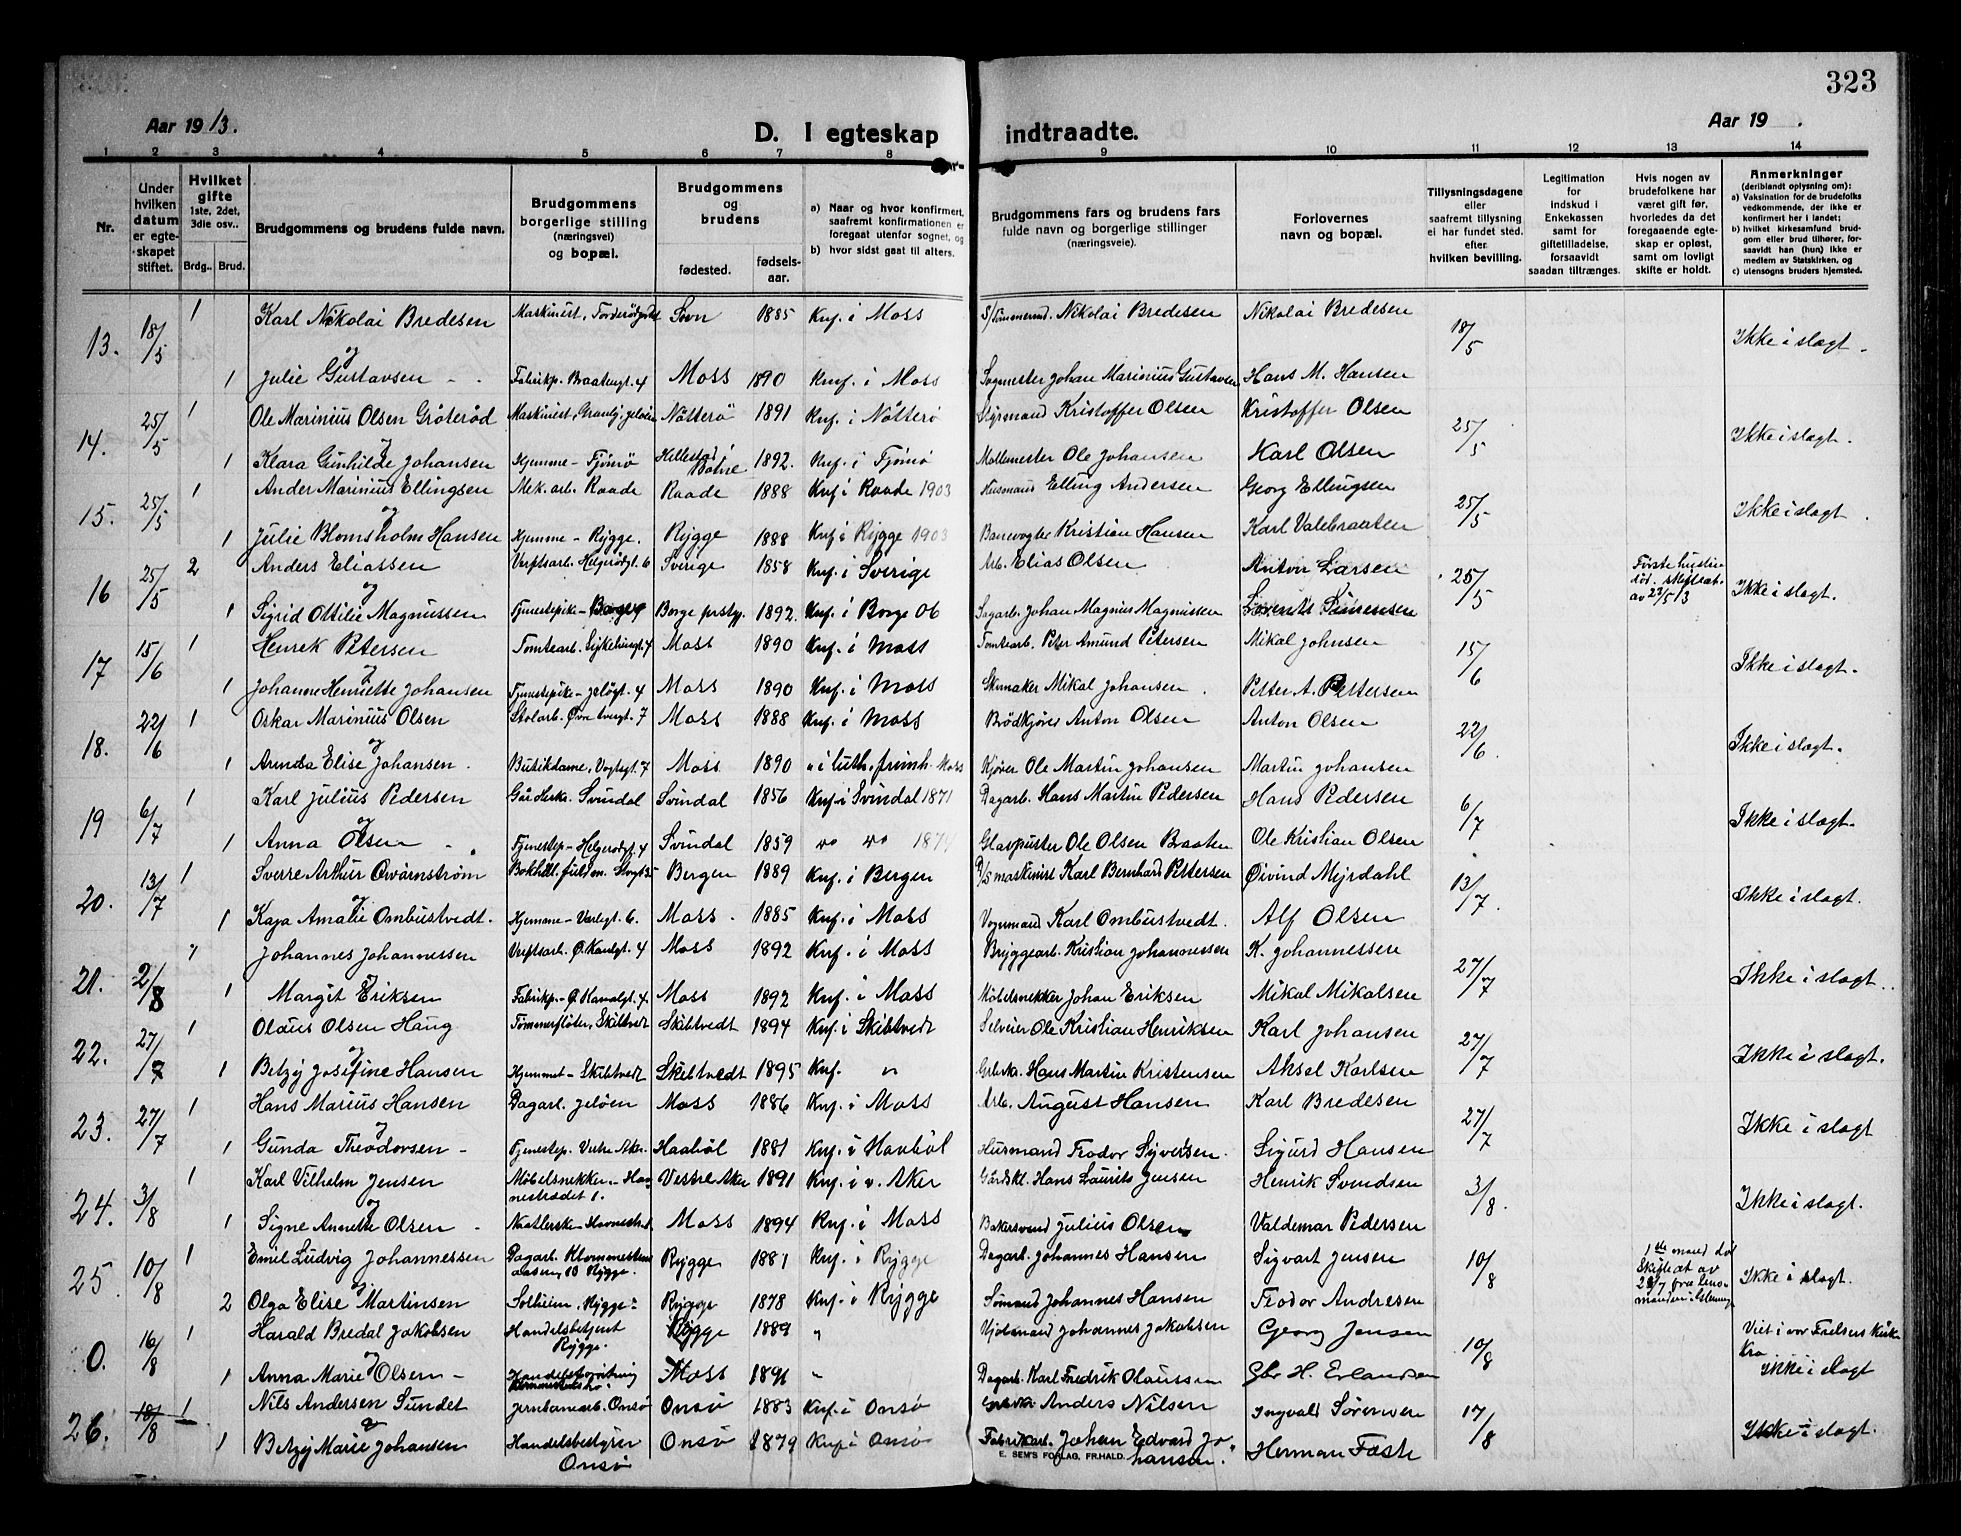 323
Aar 1913.
D. I egteskap indtraadte.
Aar 19 .
1 2 3 4 5 6 7 8 9 10 11 12 13 14
Nr.
Under hvilken datum er egteskapet stiftet.
Hvilket gifte 1ste, 2det, 3die osv..
Brdg.. Brud.
Brudgommens og brudens fulde navn.
Brudgommens borgerlige stilling (næringsvei) og bopæl.
Brudgommens og brudens
fødested.
fødselsaar.
a) Naar og hvor konfirmert, saafremt konfirmationen er foregaat utenfor sognet, og
b) hvor sidst gaat til alters.
Brudgommens fars og brudens fars fulde navn og borgerlige stillinger (næringsveie).
Forlovernes navn og bopæl.
Tillysningsdagene eller saafremt tillysning ei har fundet sted. efter hvilken bevilling.
Legitimation for indskud i Enkekassen samt for giftetilladelse, forsaavidt saadan tiltrænges.
Hvis nogen av brudefolkene har været gift før, hvorledes da det foregaaende egteskap er opløst, samt om lovligt skifte er holdt.
Anmerkninger (deriblandt oplysning om):
a) Vaksination for de brudefolks vedkommende, der ikke er konfirmert her i landet;
b) hvilket kirkesamfund brudgom eller brud tilhører, forsaavidt han (hun) ikke er medlem av Statskirken, og
c) utensogns bruders hjemsted.
13. 18/5 1 Karl Nikolai Bredesen Maskinist, Son 1885 Knf. i Moss Nikolai Bredesen Nikolai Bredesen 18/5 Ikke i slægt.
og
1 Julie Gustavsen Fabrikp. Braatengt. 4 Moss 1890 Knf. i Moss Sagmester Johan Marinius Gustavsen Hans M. Hansen
14. 25/5 1 Ole Marinius Olsen Gröteröd Maskinist, Nötterö 1891 Knf. i Nötterö Styrmand Kristoffer Olsen Kristoffer Olsen 25/5 Ikke i slægt.
og
1 Klara Gunhilde Johansen Hjemme - Tjömö Hillestad i Botne 1892. Knf. i Tjömö Möllemester Ole Johansen Karl Olsen
15. 25/5 1 Ander Marinius Ellingsen Mek. arb. Raade Raade 1888 Knf i Raade 1903 Husmand Elling Andersen Georg Ellingsen 25/5 Ikke i slægt.
og
1 Julie Blomsholm Hansen Hjemme - Rygge. Rygge 1888 Knf i Rygge 1903 Banevogter Kristian Hansen Karl Valebraaten
16 25/5 2 Anders Eliassen Verftsarb. Helgerödgt. 6 Sverige 1858 Knf. i Sverige Arb. Elias Olsen Anton Larsen 25/5 Förste hustru död. skifteat. av 23/5 13 Ikke i slægt.
og
1 Sigrid Ottilie Magnussen Tjenestepike - Borge Borge prstgj. 1892. Knf. i Borge 06 Sagarb. Johan Magnus Magnussen Lorents Simensen
17 15/6 1 Henrek Petersen Tomtearb. Sykehusgt. 4 Moss 1890 Knf. i Moss Tomtearb. Peter Amund Petersen Mikal Johnsen 15/6 Ikke i slægt.
og
1 Johanne Henriette Johansen Tjenestepike - Jelögt. 4 Moss 1890 Knf. i Moss Skomaker Mikal Johansen Petter A. Pettersen
18. 22/6 1 Oskar Marinius Olsen Stolarb. Övre torvgt. 7 Moss 1888 Knf. i Moss Brödkjörer Anton Olsen Anton Olsen 22/6 Ikke i slægt.
og
1 Elise Johansen Butikdame, Vogtsgt. 7 Moss 1890 „ i luth. frimh. Moss Kjörer Ole Martin Johansen Martin Johansen
19 6/7 1 Karl Julius Pedersen Svindal Svindal 1856 Knf. i Svindal 1871 Dagarb. Hans Martin Pedersen Hans Pedersen 6/7 Ikke i slægt.
og
1 Anna Olsen Tjenestep - Helgerödgt. 4 Svindal 1859 Glavpuster Ole Olsen Braaten Ole Kristian Olsen
20. 13/7 1 Sverre Arthur Qvarnström Bergen 1889 Knf. i Bergen D/S maskinist Karl Bernhard Pettersen Öivind Myrdahl 13/7. Ikke i slægt.
og
1 Kaja Amalie Ombustvedt. Hjemme - Varlegt. 6. Moss 1885 Knf. i Moss Vognmand Karl Ombustvedt. Alf Olsen
21. 2/8 1 Johannes Johannessen Verftsarb. Ö. Kanalgt. 4 Moss 1892 Knf. i Moss Bryggearb. Kristian Johannessen K. Johannessen 27/7 Ikke i slægt.
1 Margit Eriksen Fabrikp. - Ö. Kanalgt. 4 Moss 1892 Knf. i Moss Möbelsnekker Johan Eriksen Mikal Mikalsen
22. 27/7 1 Olaus Olsen Haug Tömmerflöter, Skibtvedt Skibtvedt 1894 Knf. i Skibtvedt Selveier Ole Kristian Henriksen Karl Johansen 27/7 Ikke i slægt.
og
1 Betzy Josefine Hansen Hjemmet - Skibtvedt Skibtvedt 1895 Knf. " Hans Martin Kristensen Aksel Karlsen
23. 27/7 1 Hans Marius Hansen Dagarb. Jelöen Moss 1886 Knf. i Moss Arb. August Hansen Karl Bredesen 27/7 Ikke i slægt
og
1 Gunda Theodorsen Tjenestep. Vestre Aker. Haaböl 1881 Knf. i Haaböl Husmand Teodor Syversen. Sigurd Hansen
24. 3/8 1 Karl Vilhelm Jensen Möbelsnekker - Havnestrædet 1. Vestre Aker 1891 Knf. i v. Aker Gårdskl. Hans Laurits Jensen Henrik Svendsen 3/8. Ikke i slægt.
og
1 Signe Annette Olsen Moss 1894 Knf. i Moss Bakersvend Julius Olsen Valdemar Pedersen
25. 10/8 1 Emil Ludvig Johannessen Dagarb. Rygge. Rygge 1881 Knf. i Rygge Dagarb. Johannes Hansen Sigvart Jensen 10/8 1ste mand död Skifteat av 28/7 fra lensmanden i Glemmen Ikke i slægt.
og
2 Olga Elise Martinsen Solheim, Rygge Rygge 1878 Knf. i Rygge Sömand Johannes Hansen Teodor Andresen
0. 16/8 1 Harald Bredal Jakobsen Handelsbetjent Rygge. Rygge 1889 " Johannes Jakobsen Georg Jensen 10/8 Viet i vor Frelsers Kirke Kra Ikke i slægt
og
1 Anna Marie Olsen Moss 1891 " Dagarb. Karl Fredrik Olaussen Chr H. Erlandsen
26. 10/8 1 Nils Andersen Sundet Jernbanearb. Onsö Onsö 1883 Knf. i Onsö Anders Nilsen Ingvald Sörensen 17/8 Ikke i slægt.
og
1 Betzy Marie Johansen Handelsbestyrer Onsö Onsö 1879 Knf i Onsö Fabrikarb. Johan Edvard Johansen. Herman Foss
E. SEM'S FORLAG, FR.HALD.